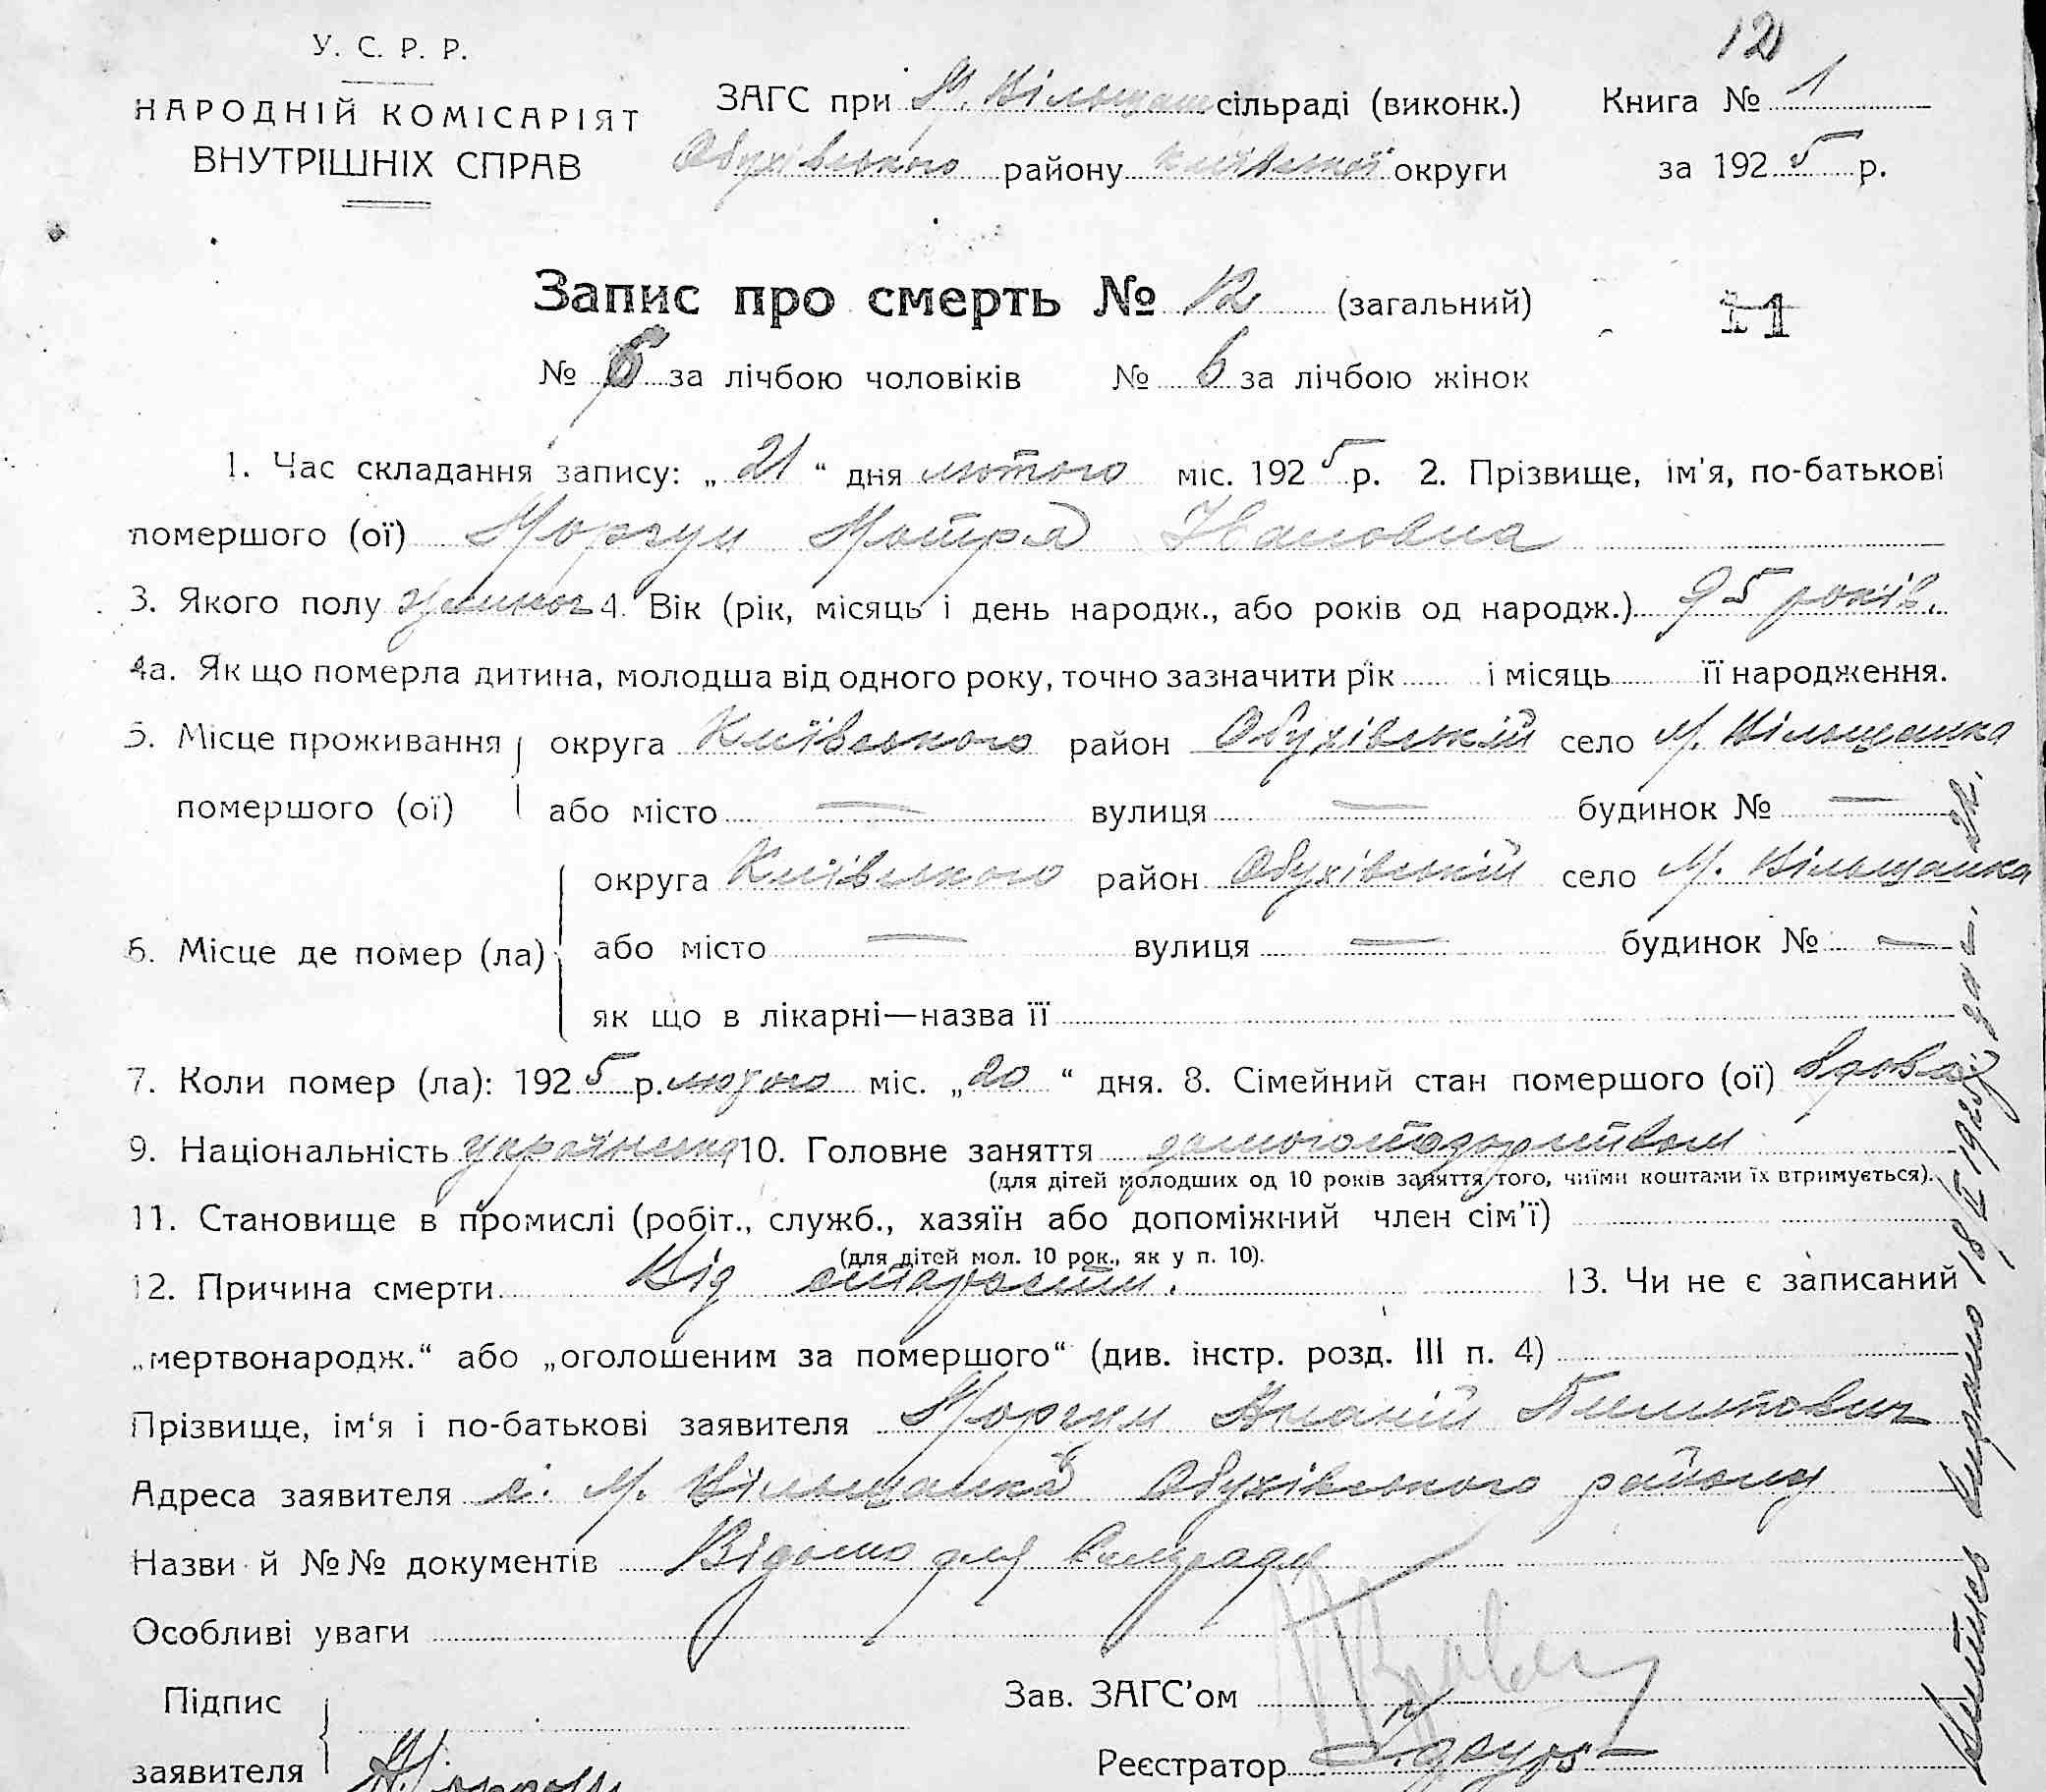 12
У. С. Р. Р.
НАРОДНІЙ КОМІСАРІЯТ
ВНУТРІШНІХ СПРАВ
ЗАГС при М. Вільшан. сільраді (виконк.)
Обухівського району Київської округи
Книга № 1
за 1925 р.
Запис про смерть № 12 (загальний)
11
№ за лічбою чоловіків № 6 за лічбою жінок
1. Час складання запису: „21“ дня лютого міс. 1925 р. 2. Прізвище, ім'я, по-батькові
помершого (ої) Моргун Мотря Івановна
3. Якого полу 4. Вік (рік, місяць і день народж., або років од народж.) 95 років.
4а. Як що померла дитина, молодша від одного року, точно зазначити рік і місяць її народження.
5. Місце проживання помершого (ої)
округа Київського район Обухівський село М. Вільщанка
або місто — вулиця — будинок № —
6. Місце де помер (ла)
округа Київського район Обухівський село М. Вільщанка
або місто — вулиця — будинок № —
як що в лікарні—назва її
7. Коли помер (ла): 1925 р. лютого міс. „20“ дня. 8. Сімейний стан помершого (ої) вдова
9. Національність українка 10. Головне заняття
(для дітей молодших од 10 років заняття того, чиїми коштами їх втримується).
11. Становище в промислі (робіт., служб., хазяїн або допоміжний член сім'ї)
(для дітей мол. 10 рок., як у п. 10).
12. Причина смерти Від старости. 13. Чи не є записаний
„мертвонародж.“ або „оголошеним за помершого“ (див. інстр. розд. III п. 4)
Прізвище, ім‘я і по-батькові заявителя Моргун Ананій
Адреса заявителя с. М. Вільщанка Обухівського району
Назви й №№ документів Відомо для
Особливі уваги
Підпис заявителя
Зав. ЗАГС’ом
Реєстратор
Витяг видано 1925